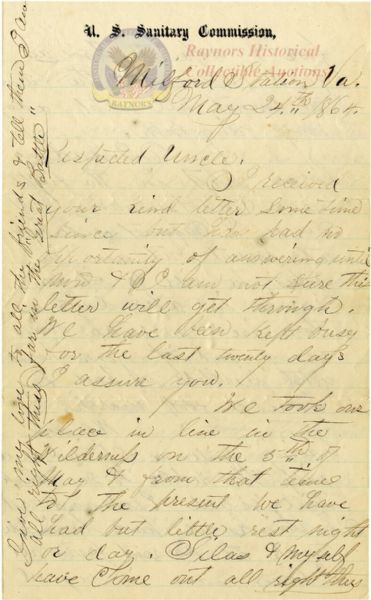 U. S. Sanitary Commission,
Raynors Historical
Collectible Auctions
RAYNORS
Milford Station Va.
May 24th 1864.
Respected Uncle.
I received
your kind letter some time
since but have had no
opportunity of answering until
now & I am not sure this
letter will get through.
We have been kept busy
for the last twenty days
I assure you.
We took our
place in line in the
Wilderness on the 5th of
May & from that time
to the present we have
had but little rest night
or day. Silas & myself
have come out all right thus
Give my love to all the friends & tell them I am
all right thus far in the great Battle"